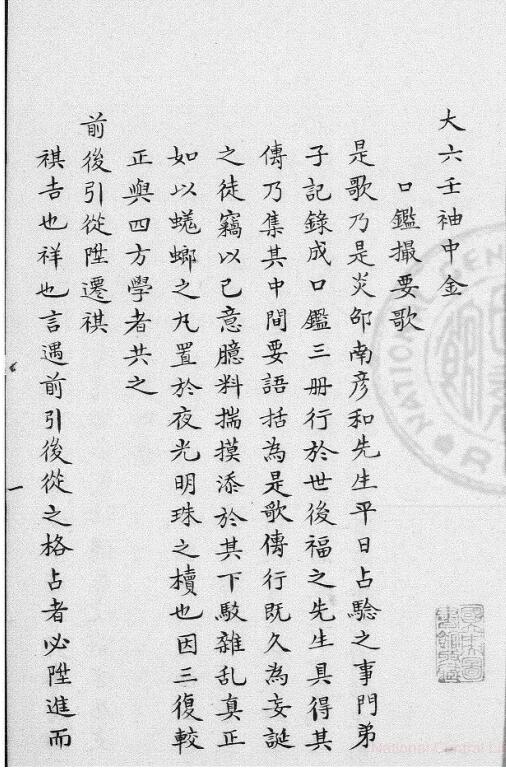 大六壬袖中金
口鑑撮要歌
是歌乃是炎邵南彦和先生平日占驗之事門弟
子記錄成口鑑三册行於世後福之先生具得其
傳乃集其中間要語括為是歌傳行既久為妄誕
之徒竊以己意臆料揣摸添於其下駁雜乱真正
如以蜣螂之丸置於夜光明珠之櫝也因三復較
正與四方學者共之
前後引從陞遷祺
祺吉也祥也言遇前引後從之格占者必陞進而
一
National Central Li